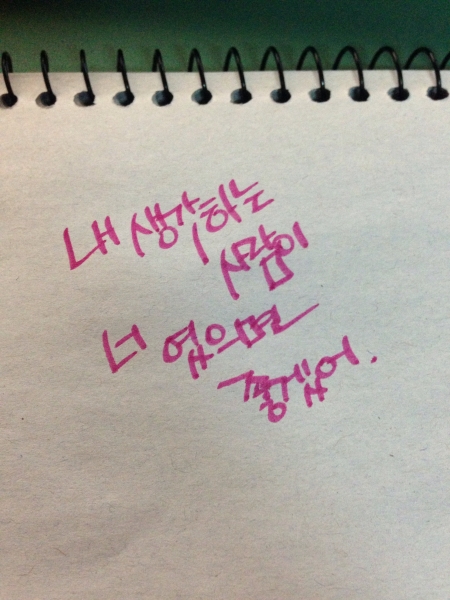 내 생각하는
사람이
너 였으면
좋겠어.